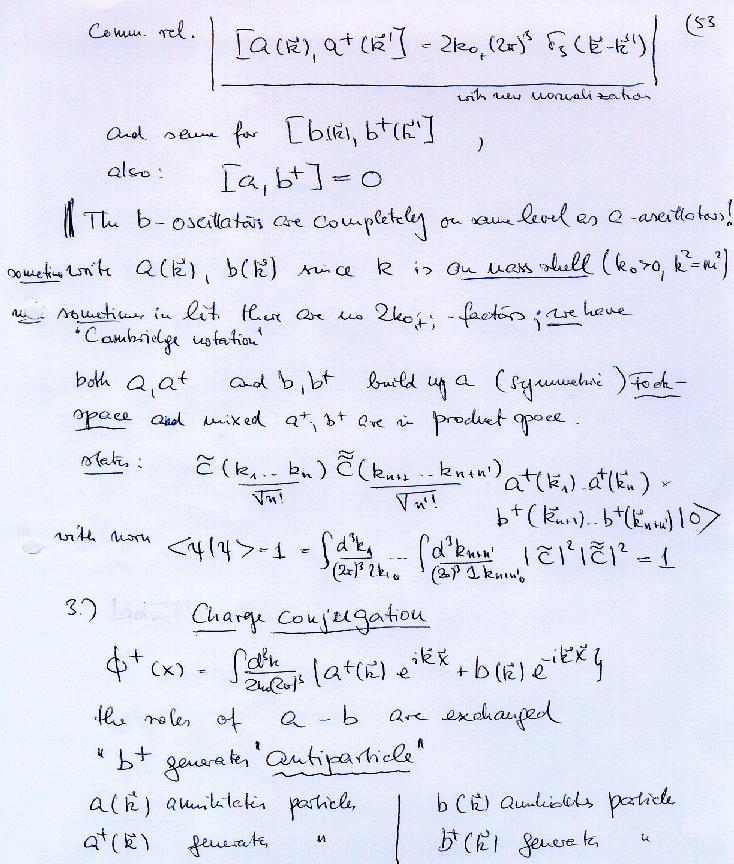 (53
Comm. rel. [a(k⃗), a⁺(k⃗')] = 2k₀₊ (2π)³ δ₃(k⃗-k⃗')
with new normalization
and same for [b(k), b⁺(k')] ,
also: [a, b⁺] = 0
The b-oscillators are completely on same level as a-oscillators!
sometimes write a(k⃗), b(k⃗) since k is on mass shell (k₀>0, k²=m²)
sometimes in lit. there are no 2k₀₊; -factors; we have
'Cambridge notation'
both a, a⁺ and b, b⁺ build up a (symmetric) Fock-
space and mixed a⁺, b⁺ are in product space.
states: c̃(k₁...kₙ)/√n! c̃̃(kₙ₊₁...kₙ₊ₙ')/√n'! a⁺(k⃗₁)..a⁺(k⃗ₙ) ×
b⁺(k⃗ₙ₊₁)..b⁺(k⃗ₙ₊ₙ')|0>
with norm <ψ|ψ>=1 = ∫d³k₁/(2π)³2k₁₀ ... ∫d³kₙ₊ₙ'/(2π)³2kₙ₊ₙ'₀ |c̃|²|c̃̃|² = 1
3.) Charge conjugation
ϕ⁺(x) = ∫d³k/2k₀(2π)³ {a⁺(k⃗) e^{ik⃗x⃗} + b(k⃗) e^{-ik⃗x⃗}}
the roles of a - b are exchanged
" b⁺ generates "antiparticle"
a(k⃗) annihilates particle, b(k⃗) annihilates particle
a⁺(k⃗) generates " b⁺(k⃗) generates "